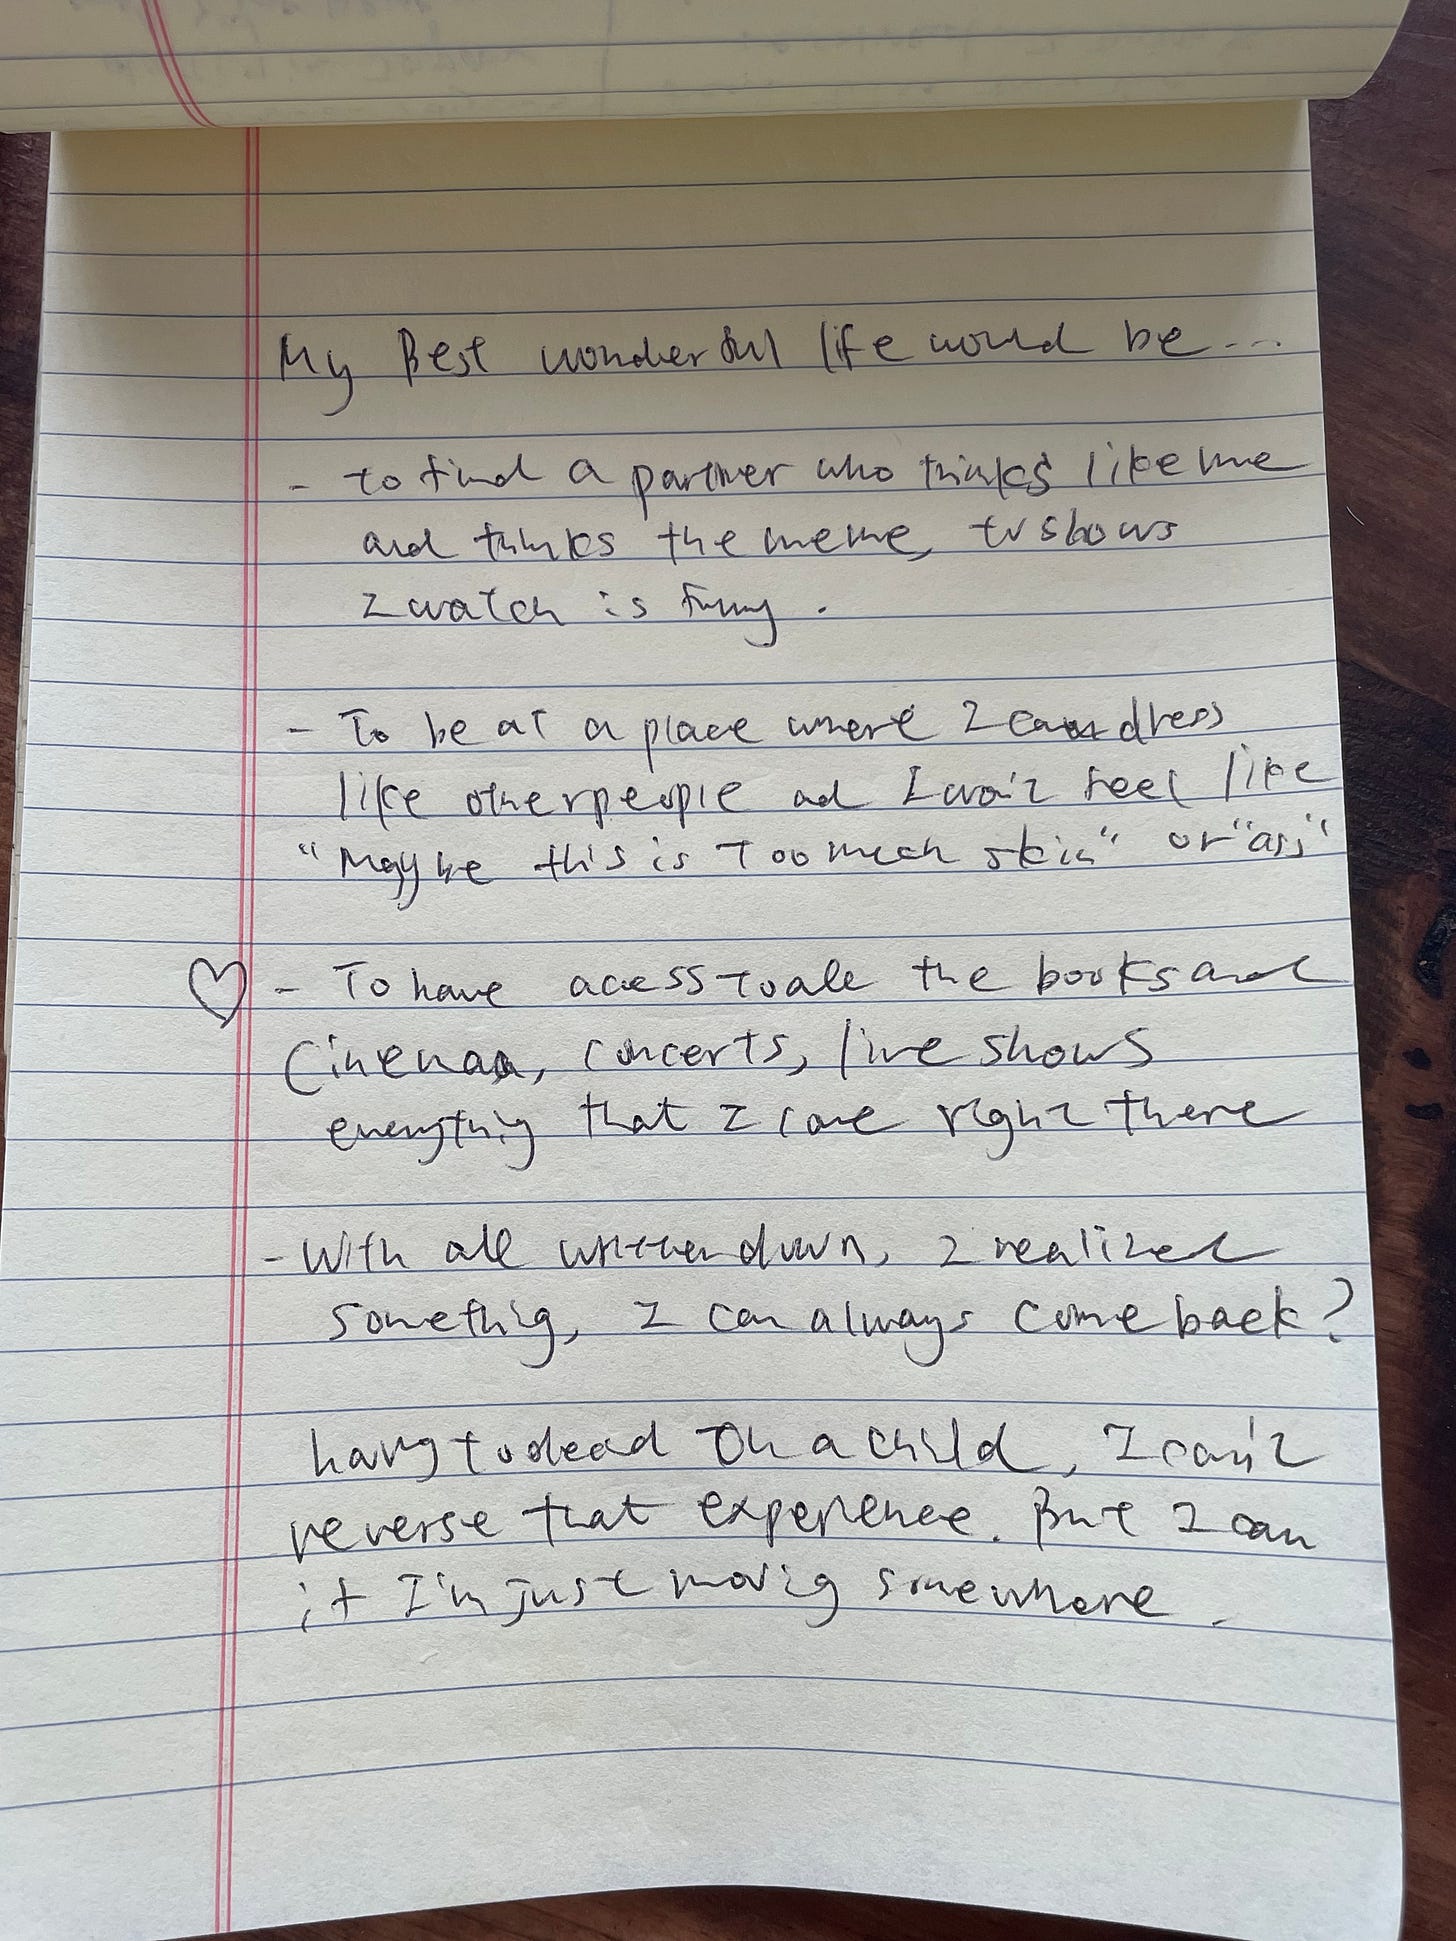 My Best wonderful life would be...
- to find a partner who thinks like me
and thinks the meme, tv shows
I watch is funny.
- To be at a place where I can dress
like other people ad I won't feel like
"Maybe this is Too much skin" or "ass"
♡ - To have access to all the books and
Cinemaa, concerts, live shows
everything that I care right there
- With all written down, I realized
something, I can always come back?
to on a child, I can't
reverse that experience. But I can
if I'm just movig somewhere.